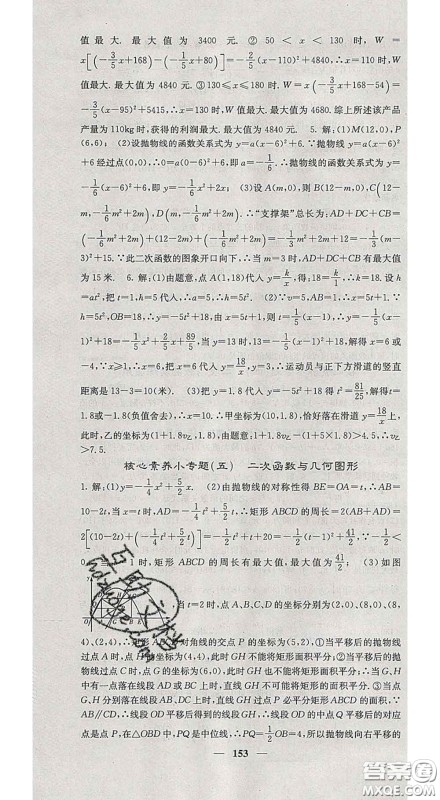 值最大. 最大值为 3400 元. ② 50 < x < 130 时, W =
x[(-3/5x+168)-(-3/5x+80)]=-3/5(x-75)²+
值最大. 最大值为 4840 元. ③130≤x≤180 时. W=x(-3/5x+168-54)=
-3/5(x-95)²+5415,∴x=130 时,W 值最大. 最大值为 4680. 综上所述该产品
产量为 110kg 时,获得的利润最大. 最大值为 4840 元. 5. 解:(1)M(12,0),P
(6,6); (2)设抛物线的函数关系式为 y=a(x-6)²+6. ∵抛物线 y=a(x-6)²
+6 经过点(0,0),∴0=a(0-6)²+6,即 a=-1/6. ∴抛物线的函数关系式为 y=
-1/6(x-6)²+6,即 y=-1/6x²+2x; (3)设 A(m,0),则 B(12-m,0),C(12-m,
-1/6m²+2m),D(m,-1/6m²+2m). ∴“支撑架”总长为:AD+DC+CB=
(-1/6m²+2m)+(12-2m)+(-1/6m²+2m)=-1/3m²+2m+12=-1/3(m-
3)²+15. ∵此二次函数的图象开口向下,∴当 m=3 时,AD+DC+CB 有最大值
为 15 米. 6. 解:(1)由题意,点 A(1,18)代入 y=k/x,得:18=k/1,∴k=18. 设 h
=at²,把 t=1,h=5 代入,∴a=5,∴h=5t²; (2)∵v=5,AB=1,∴x=5t+1. ∵
h=5t²,OB=18,∴y=-5t²+18,由 x=5t+1,则 t=1/5(x-1),∴y=-1/5(x-1)²
+18=-1/5x²+2/5x+89/5,当 y=13 时,13=-1/5(x-1)²+18,解得:x=6 或
-4,∵x≥1,∴x=6,把 x=6 代入 y=18/x,y=3,∴运动员与正下方滑道的竖直
距离是 13-3=10(米). (3)把 y=1.8 代入 y=-5t²+18 得 t²=81/25,解得:t=
1.8或-1.8(负值舍去),∴x=10. ∴甲坐标为(10,1.8),恰好落在滑道 y=18/x
上,此时,乙的坐标为(1+1.8v乙,1.8),由题意:1+1.8v乙-(1+5×1.8)>4.5,∴v乙
>7.5.
核心素养小专题(五) 二次函数与几何图形
1. 解:(1)y=-1/4x²+5/2x. (2)由抛物线的对称性得 BE=OA=t,∴AB=
10-2t,当 x=t 时,AD=-1/4t²+5/2t,∴矩形 ABCD 的周长=2(AB+AD)=
2[(10-2t)+(-1/4t²+5/2t)]=-1/2t²+t+20=-1/2(t-1)²+41/2,∵-1/2<
0,∴当 t=1 时,矩形 ABCD 的周长有最大值,最大值为 41/2; (3)如图
,当 t=2 时,点 A、B、C、D 的坐标分别为(2,0)、(8,0)、(8,
4)、(2,4),∴矩形 ABCD 对角线的交点 P 的坐标为(5,2),①当平移后的抛物线
过点 A 时,点 H 的坐标为(4,4),此时直线 GH 不能将矩形面积平分;②当平移后
的抛物线过点 C 时,点 G 的坐标为(6,0),此时 GH 也不能将矩形面积平分,∴当 G、H
中有一点落在线段 AD 或 BC 上时,直线 GH 不可能将矩形的面积平分. ③当点
G、H 分别落在线段 AB、DC 上时,直线 GH 过点 P 必平分矩形 ABCD 的面积. ∵
AB∥CD,∴线段 OD 平移后得到的线段 GH,∴线段 OD 的中点 Q 平移后的对应
点是点 P,在△OBD 中,PQ 是中位线,∴PQ=1/2OB=4,所以抛物线向右平移的
153
答案圈
MXQE.COM